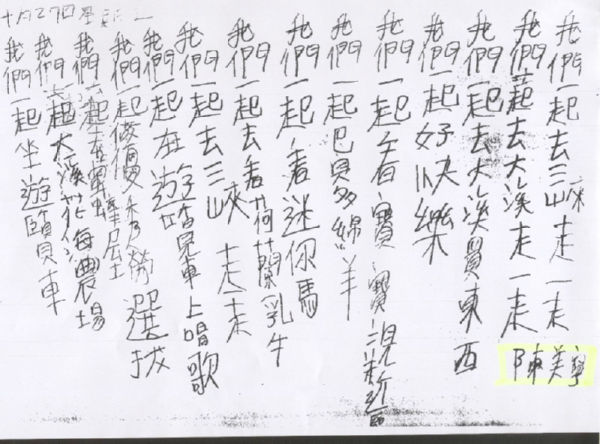 我們一起去三峽走一走
我們一起去大溪走一走
我們一起去大溪買東西
我們一起好快樂
我們一起看寶寶
我們一起巴貝多綿羊
我們一起看迷你馬
我們一起去看荷蘭乳牛
我們一起去三峽走走
我們一起在遊覽車上唱歌
我們一起優秀勞選拔
我們一起去
我們一起大溪花海農場
我們一起坐遊車
十月27日星期
陳美寧